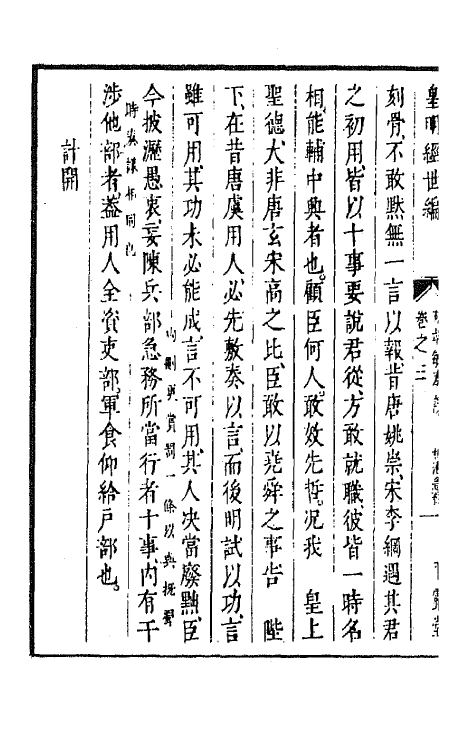 皇明經世編
卷之三
刻骨不敢黙無一言以報昔唐姚崇宋李綱遇其君
之初用皆以十事要說君從方敢就職彼皆一時名
相能輔中興者也顧臣何人敢效先哲况我 皇上
聖德大非唐玄宋高之比臣敢以堯舜之事告 陛
下在昔唐虞用人必先敷奏以言而後明試以功言
雖可用其功未必能成言不可用其人决當廢黜臣
今披瀝愚衷妄陳兵部急務所當行者十事内有干
涉他部者蓋用人全資吏部軍食仰給戶部也
計開